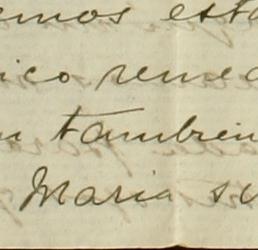 emos esta
ico remed
n tambien
Maria su